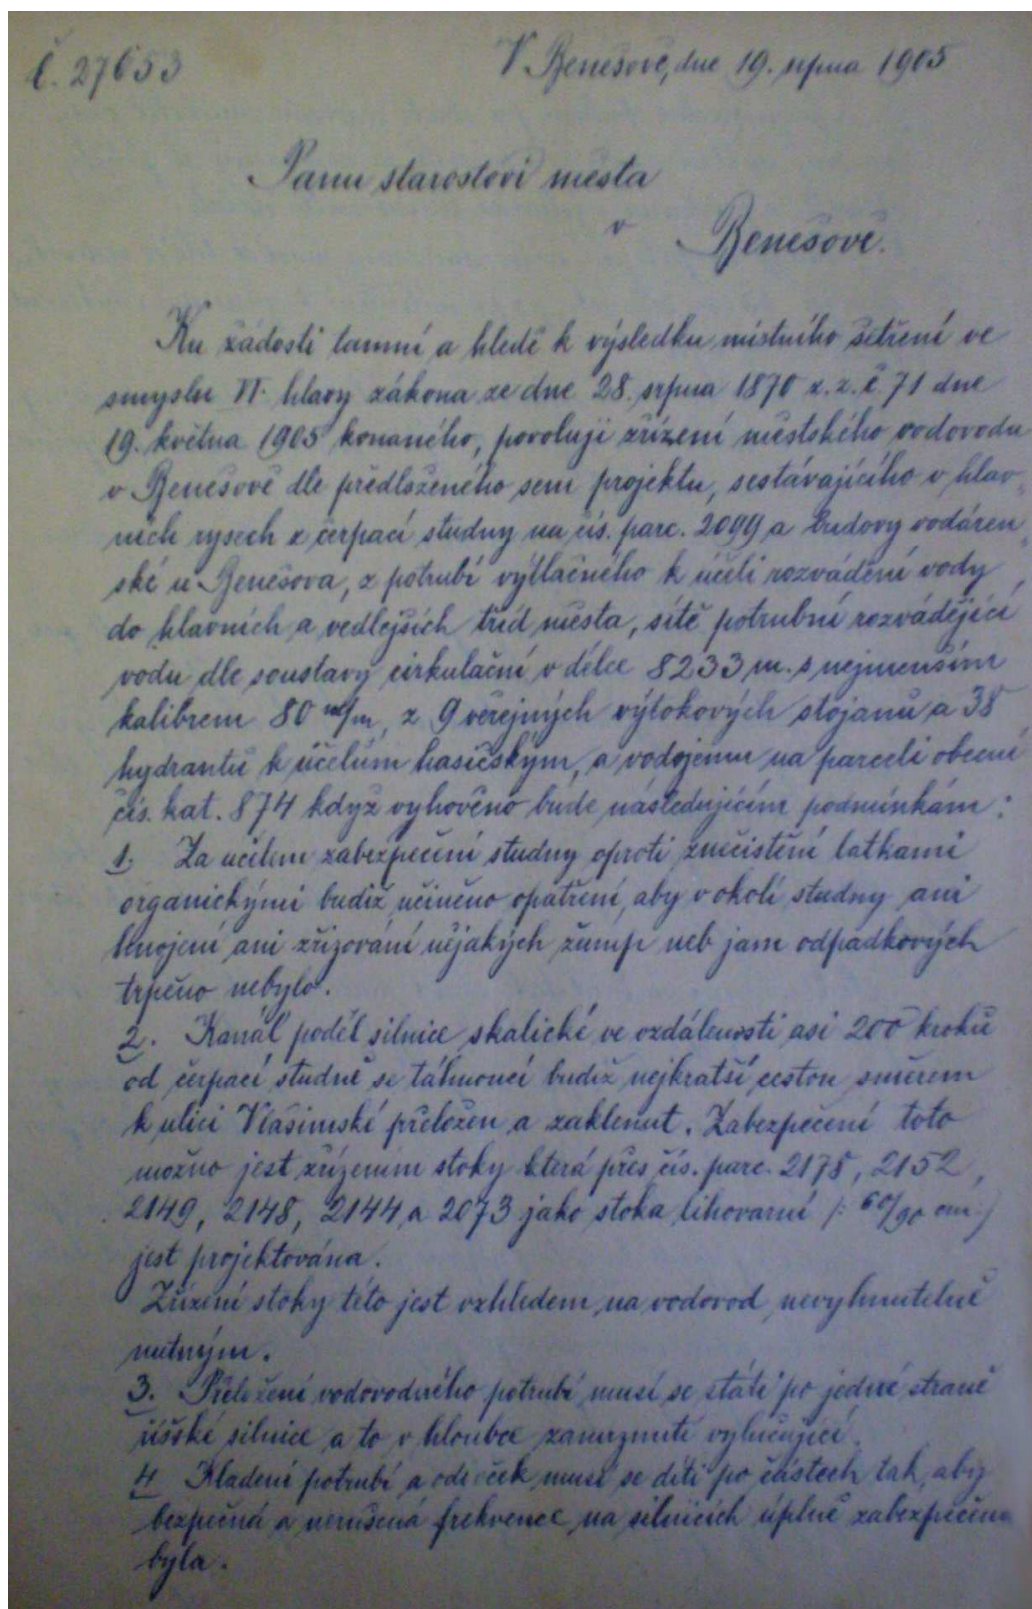 č. 27653
V Benešově, dne 19. srpna 1905
Panu starostovi města
v
Benešově.
Ku žádosti tamní a hledě k výsledku místního šetření ve
smyslu VI. hlavy zákona ze dne 28. srpna 1870 z. z. č. 71 dne
19. května 1905 konaného, povoluji zřízení městského vodovodu
v Benešově dle předloženého sem projektu, sestávajícího v hlav-
ních rysech z čerpací studny na čís. parc. 2099 a budovy vodáren-
ské u Benešova, z potrubí výtlačného k účeli rozvádění vody
do hlavních a vedlejších tříd města, sítě potrubní rozvádějící
vodu dle soustavy cirkulační v délce 8233 m. s nejmenším
kalibrem 80 m/m, z 9 veřejných výtokových stojanů a 38
hydrantů k účelům hasičským, a vodojemu na parceli obecní
čís. kat. 874 když vyhověno bude následujícím podmínkám:
1. Za účelem zabezpečení studny oproti znečistění latkami
organickými budiž učiněno opatření, aby v okolí studny ani
hnojení ani zřizování nějakých žump neb jam odpadkových
trpěno nebylo.
2. Kanál podél silnice skalické ve vzdálenosti asi 200 kroků
od čerpací studně se táhnoucí budiž nejkratší cestou směrem
k ulici Vlašimské přeložen a zaklenut. Zabezpečení toto
možno jest zřízením stoky která přes čís. parc. 2178, 2152,
2149, 2148, 2144 a 2073 jako stoka lihovarní /: 60/90 cm :/
jest projektována.
Zřízení stoky této jest vzhledem na vodovod nevyhnutelně
nutným.
3. Přeložení vodovodního potrubí musí se státi po jedné straně
říšské silnice a to v hloubce zamrznutí vylučující.
4 Kladení potrubí a odboček musí se díti po částech tak, aby
bezpečná a nerušená frekvence na silnicích úplně zabezpečena
byla.